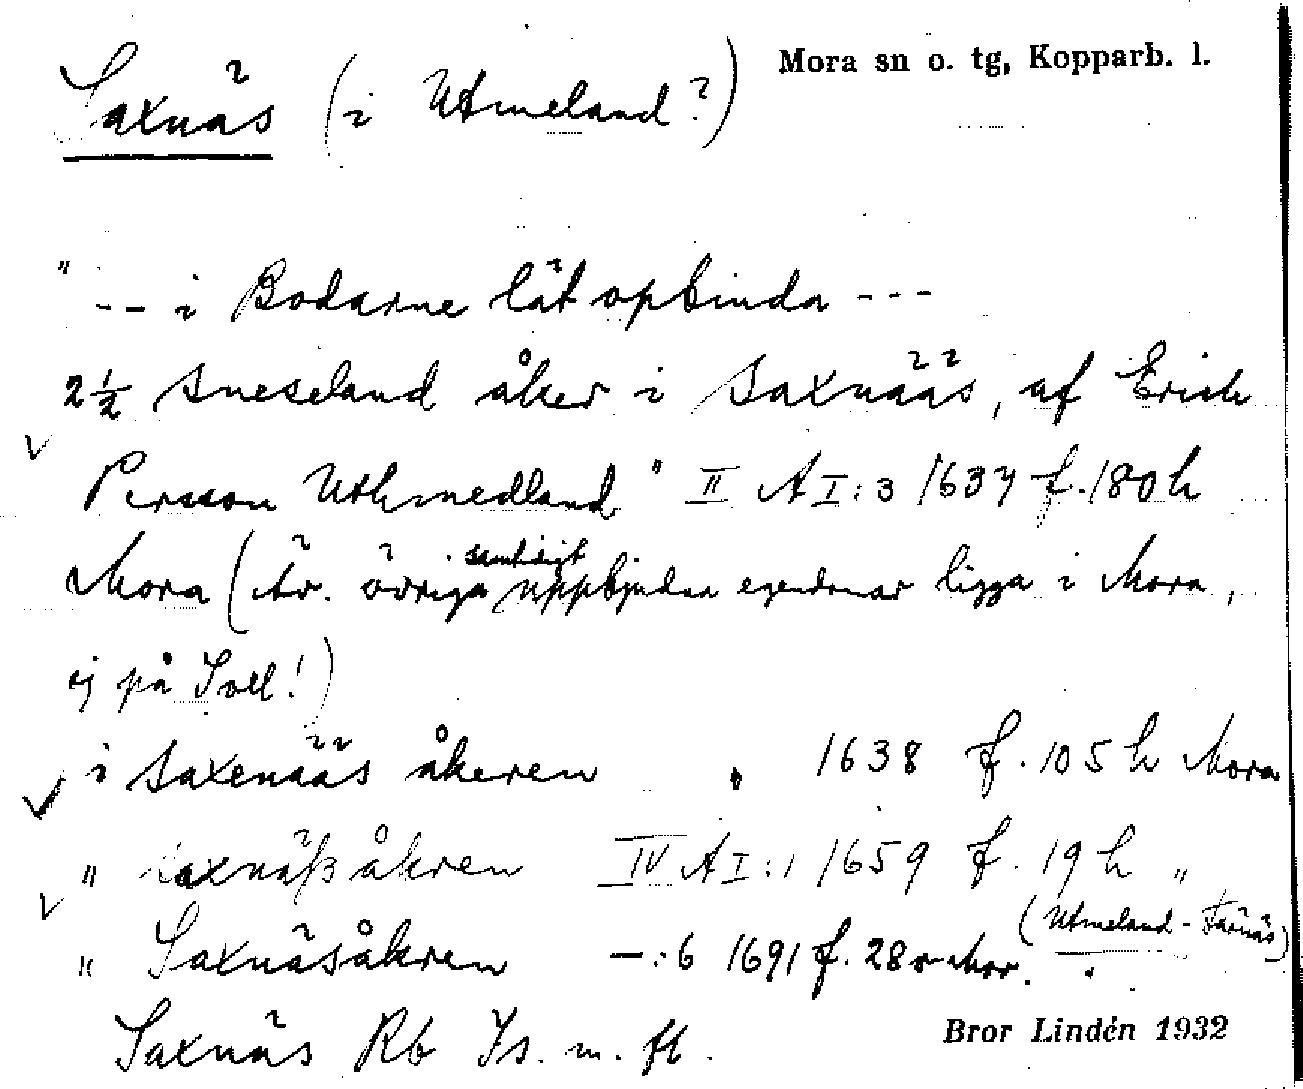 Saxnäs (i Utmeland?) Mora sn o. tg, Kopparb. l.
" -- i Bodarne lät opbinda ---
2½ sneseland åker i Saxnääs, af Erich
Persson Uthmedland" II A I:3 1637 f. 180 h
Mora (Äv. övriga samtidigt uppbjudna egendomar ligga i Mora,
ej på Soll!)
i Saxenääs åkeren " 1638 f. 105 h Mora
" Saxnäß åkren IV A I:1 1659 f. 19 h "
" Saxnäsåkren —:6 1691 f. 28 v Mor. (Utmeland - Färnäs)
Saxnäs Rb Is. m. fl.
Bror Lindén 1932